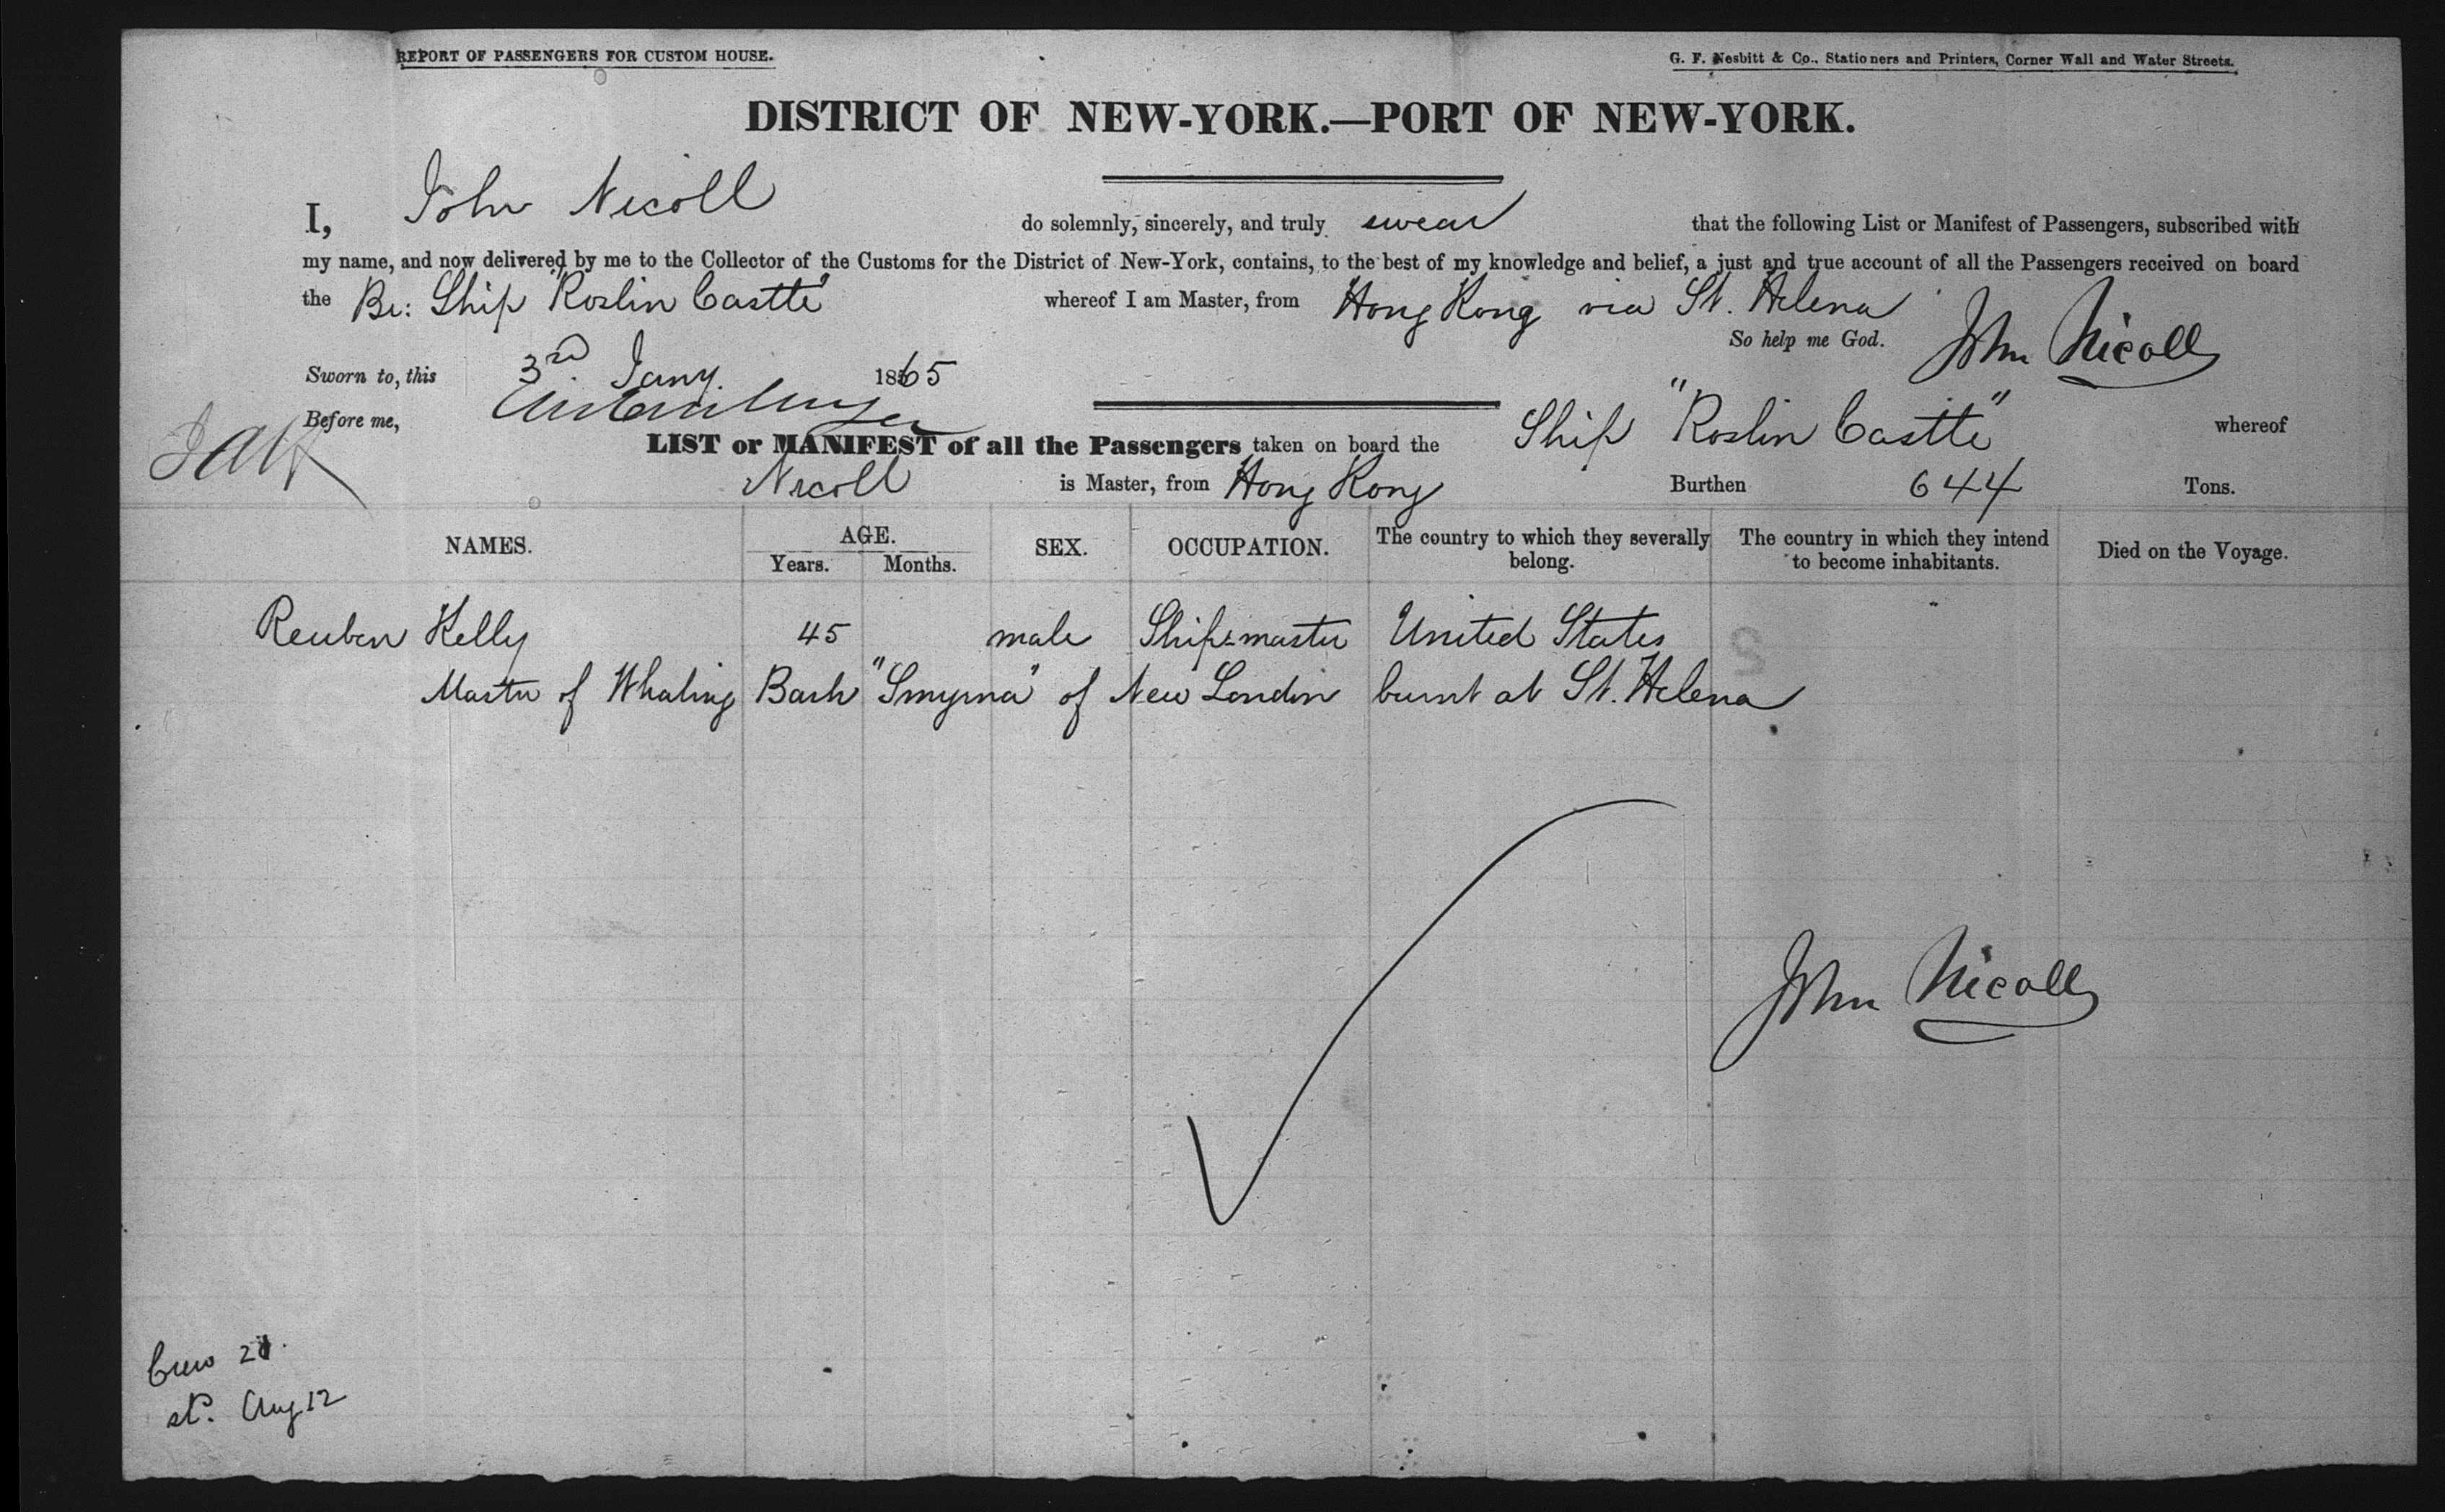 REPORT OF PASSENGERS FOR CUSTOM HOUSE.
G. F. Nesbitt & Co., Stationers and Printers, Corner Wall and Water Streets.
DISTRICT OF NEW-YORK.—PORT OF NEW-YORK.
I, John Nicoll do solemnly, sincerely, and truly swear that the following List or Manifest of Passengers, subscribed with
my name, and now delivered by me to the Collector of the Customs for the District of New-York, contains, to the best of my knowledge and belief, a just and true account of all the Passengers received on board
the Br: Ship "Roslin Castle" whereof I am Master, from Hong Kong via St. Helena
So help me God. John Nicoll
Sworn to, this 3rd Jany. 1865
Before me,
LIST or MANIFEST of all the Passengers taken on board the Ship "Roslin Castle" whereof
Nicoll is Master, from Hong Kong Burthen 644 Tons.
NAMES. AGE. Years. Months. SEX. OCCUPATION. The country to which they severally belong. The country in which they intend to become inhabitants. Died on the Voyage.
Reuben Kelly 45 male Ship-master United States
Master of Whaling Bark "Smyrna" of New London burnt at St. Helena
John Nicoll
Crew
Aug 12